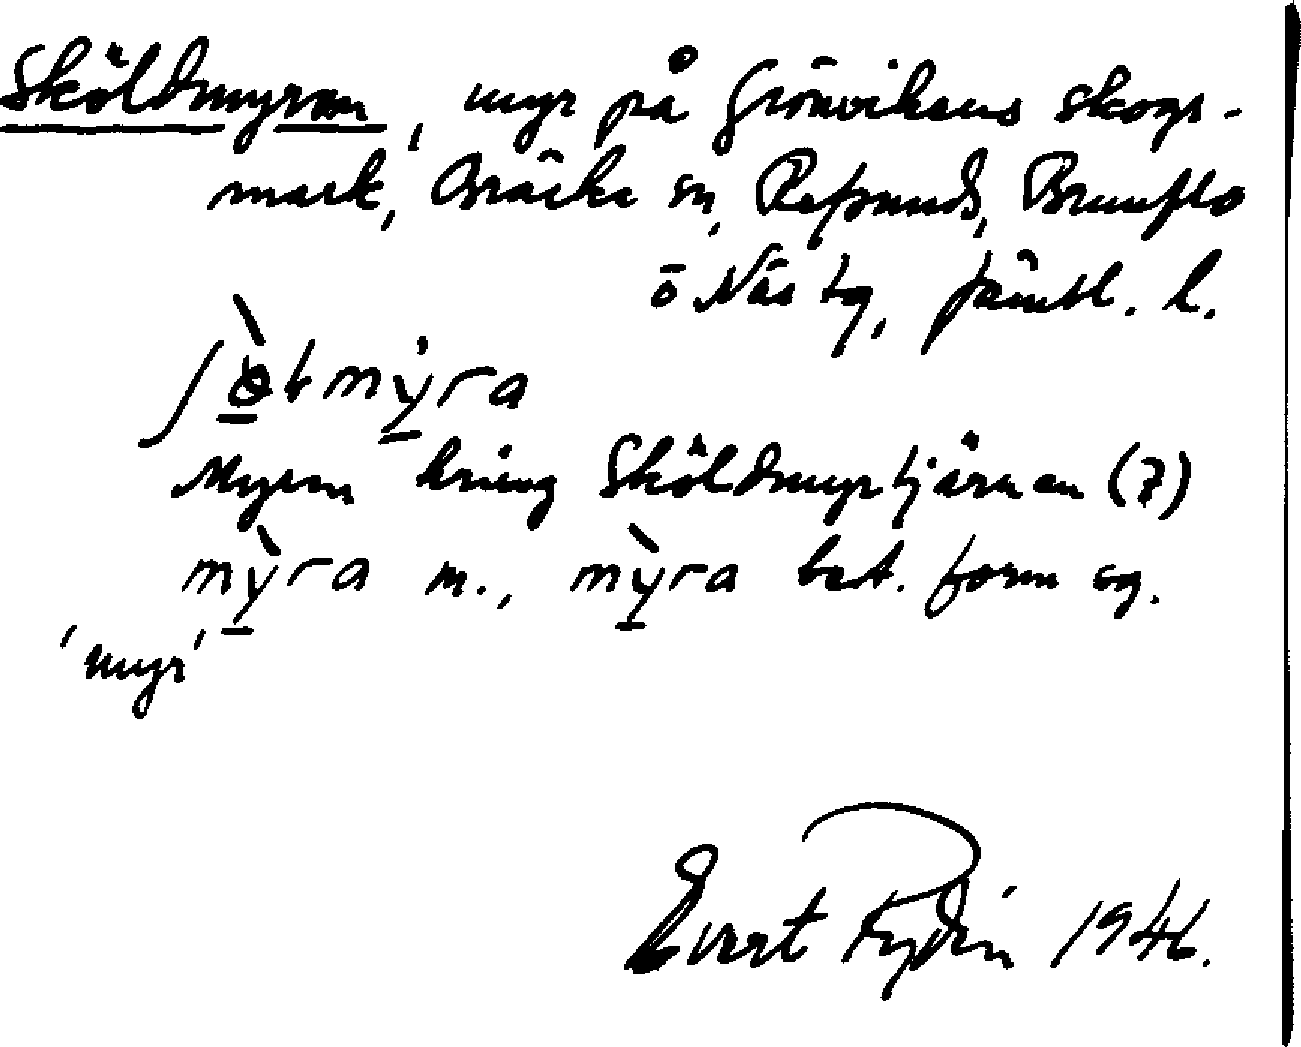 Sköldmyran, myr på Grönvikens skogs-
mark, Bräcke sn, Refsunds, Brunflo
o Näs tg, Jämtl. l.
ʃɵ̀tmỳra
Myren kring Sköldmyrtjärnen (?)
mỳra m., mỳra best. form sg.
'myr'
Evert Rydin 1946.